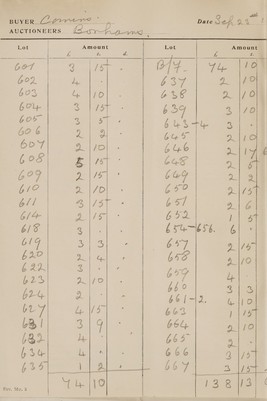 BUYER Comins. Date Sep 23rd
AUCTIONEERS Bonhams.
Lot Amount Lot Amount
£ s. d. £ s. d.
601 3 15 . B/f. 74 10
602 4 . . 637 2 10
603 4 10 . 638 2 10
604 3 15 . 639 3 10
605 3 5 . 643-4 3 .
606 2 2 . 645 2 10
607 2 10 . 646 2 17 6
608 5 15 . 648 2 5
609 2 15 . 649 2 2
610 2 10 . 650 2 15
611 3 15 . 651 2 6
614 2 15 . 652 1 5
618 3 . 654-656. 6 .
619 3 3 . 657 2 15
620 2 4 . 658 2 10
622 3 . 659 4 .
623 2 10 . 660 3 3
624 2 . 661-2. 4 10
627 4 15 . 663 1 15
631 3 9 . 664 2 10
632 4 . 665 2 .
634 4 . 666 3 15
635 1 2 . 667 3 15
74 10 138 13